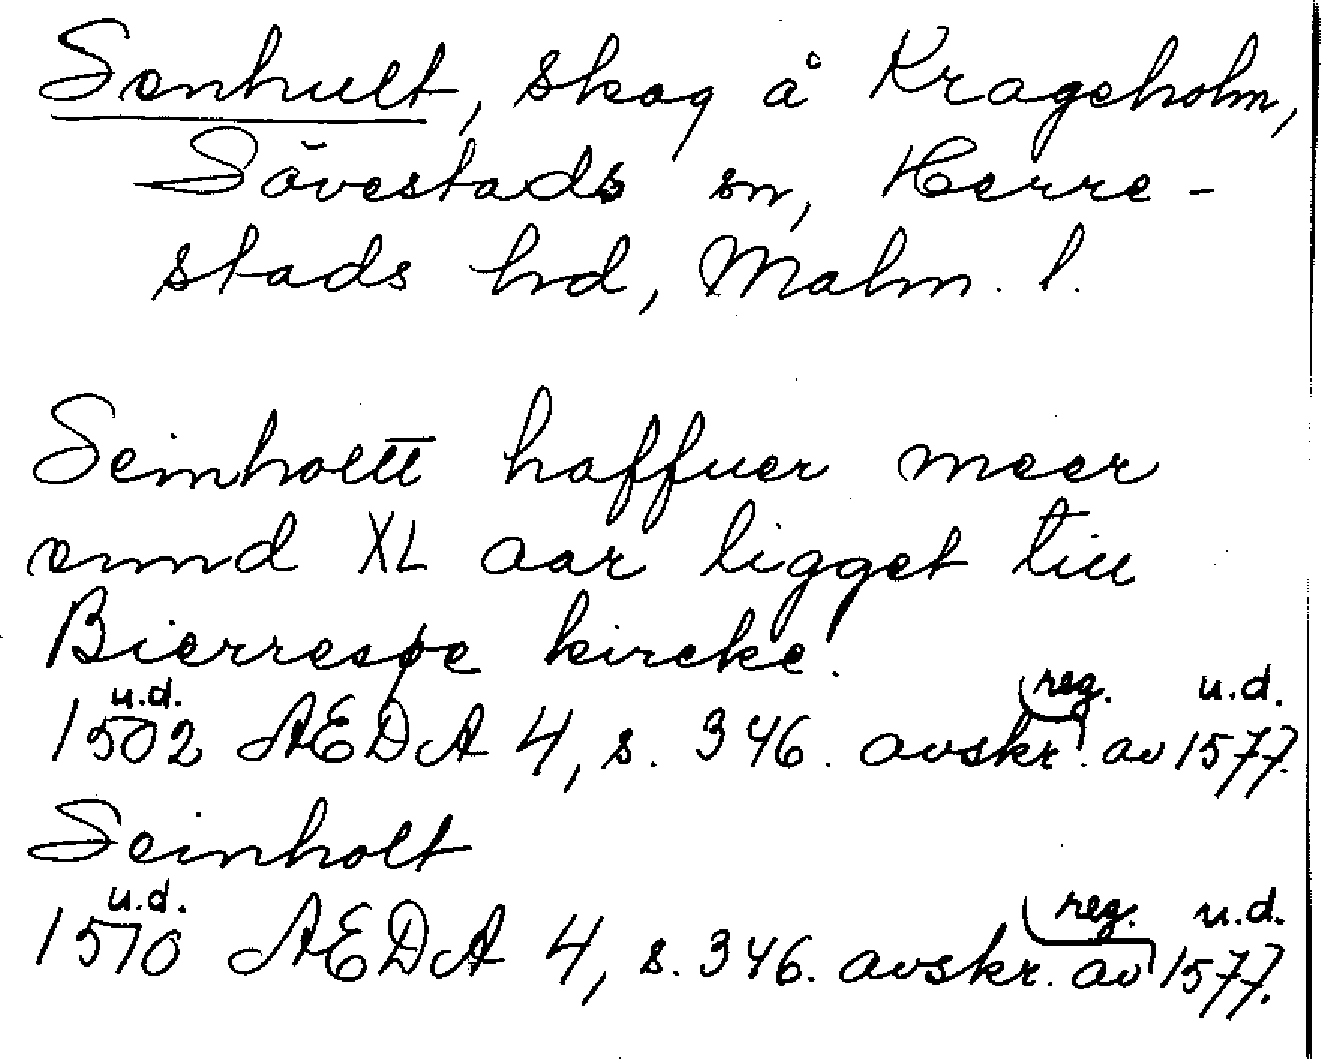 Senhult, skog å Krageholm,
Sövestads sn, Herre-
stads hd, Malm. l.
Seinholtt haffuer meer
ennd XL aar ligget till
Bierresøe kircke.
u.d. reg. u.d.
1502 AEDA 4, s. 346. avskr. av 1577.
Seinholt
u.d. reg. u.d.
1570 AEDA 4, s. 346. avskr. av 1577.